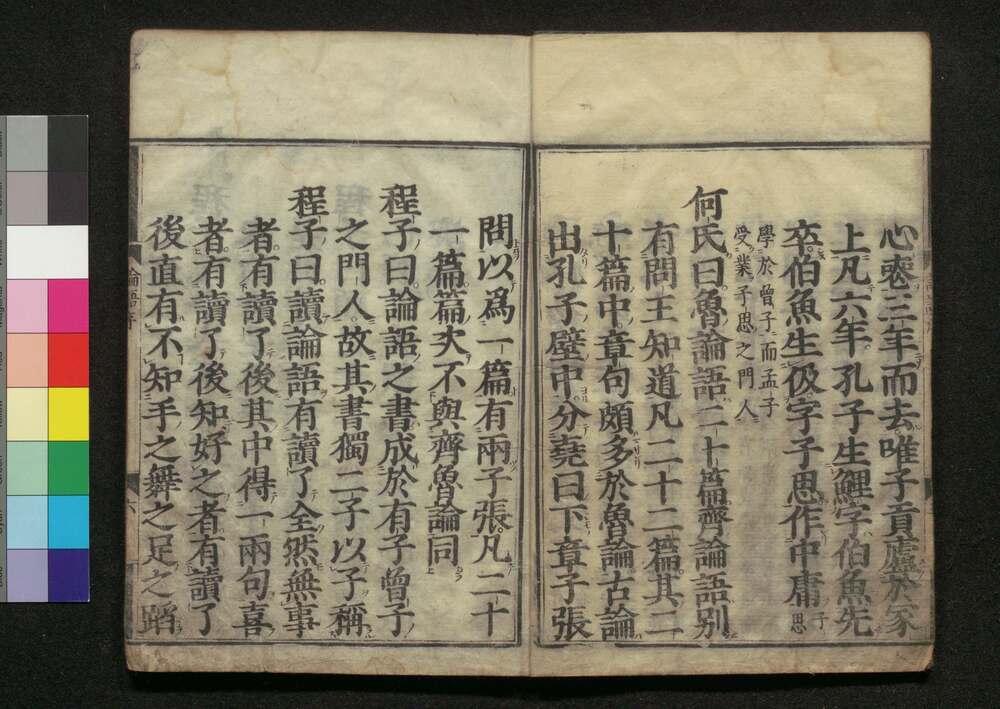 心喪三年而去唯子貢廬於冢
上凡六年孔子生鯉字伯魚先
卒伯魚生伋字子思作中庸子思
學於曾子而孟子
受業子思之門人
何氏曰魯論語二十篇齊論語別
有問王知道凡二十二篇其二
十篇中章句頗多於魯論古論
出孔子壁中分堯曰下章子張
問以爲一篇有兩子張凡二十
一篇篇次不與齊魯論同
程子曰論語之書成於有子曾子
之門人故其書獨二子以子稱
程子曰讀論語有讀了全然無事
者有讀了後其中得一兩句喜
者有讀了後知好之者有讀了
後直有不知手之舞之足之蹈
論語序
六